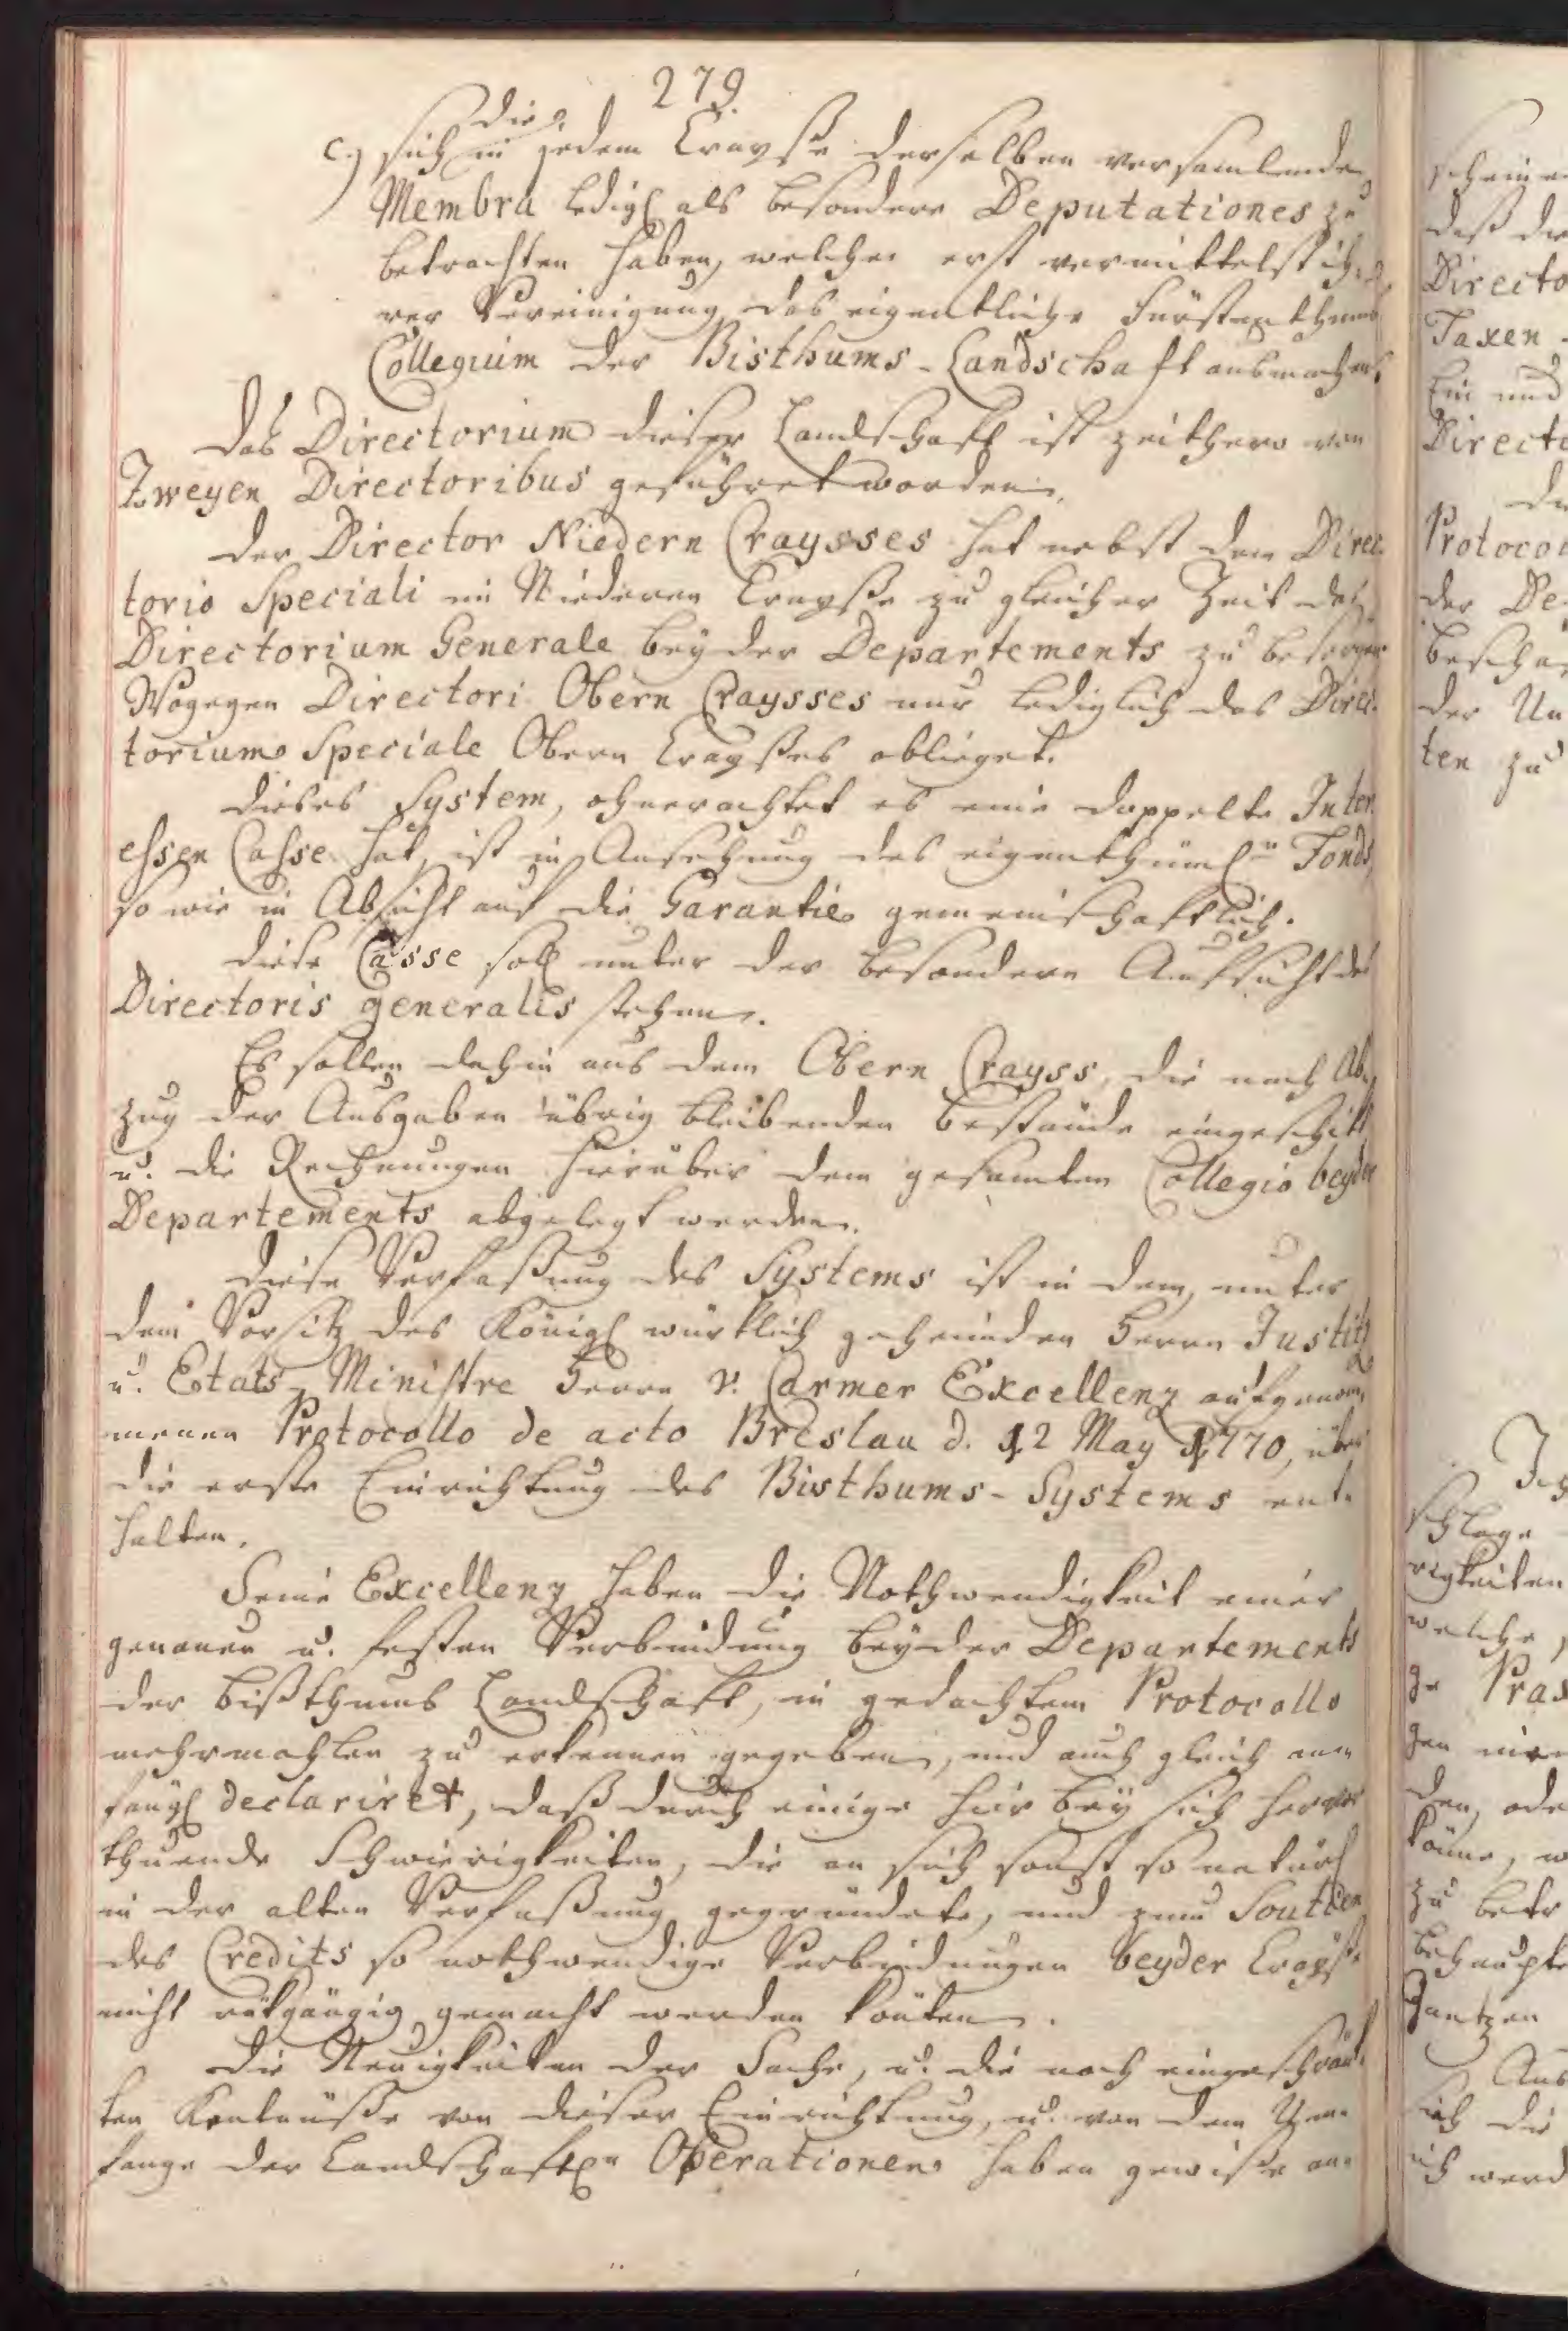 279.
die
c.) sich in jedem Crayße derselben versamlende
Membra ledigl als besondere Deputationes zu
betrachten haben, welche erst vermittelst ih-
rer Vereinigung das eigentliche Fürstenthums
Collegium der Bisthums-Landschaft ausmachen.
Das Directorium dieser Landschaft ist zeithero von
Zweyen Directoribus geführet worden.
Der Director Niedern Craysses hat nebst dem Direc-
torio Speciali im Niederen Crayße zu gleicher Zeit das
Directorium Generale beyder Departements zu besorgen
Wogegen Directori Obern Craysses nur lediglich das Direc-
torium Speciale Obern Crayßes oblieget.
Dieses System, ohnerachtet es eine doppelte Inter-
essen Casse hat, ist in Ansehung des eigenthüml.n Fonds,
so wie in Absicht auf die Garantie gemeinschaftlich.
Diese Casse soll unter der besondern Aufsicht des
Directoris generalis stehen.
Es sollen dahin aus dem Obern Crayss, die nach Ab-
zug der Ausgaben übrig bleibenden Bestände eingeschikt
u. die Rechnungen hierüber dem gesamten Collegio beyder
Departements abgelegt werden.
Diese Verfaßung des Systems ist in dem, unter
dem Vorsitz des Königl würklich geheimden Herrn Justitz
u. Etats-Ministre Herrn v. Carmer Excellenz aufgenom-
menen Protocollo de acto Breslau d. 12 May 1770, über
die erste Einrichtung des Bisthums-Systems ent-
halten.
Seine Excellenz haben die Nothwendigkeit einer
genauen u. festen Verbindung beyder Departements
der Bißthums Landschaft, in gedachtem Protocollo
mehrmahlen zu erkennen gegeben, und auch gleich an-
fängl declariret, daß durch einige hier bey sich hervor
thuende Schwierigkeiten, die an sich sonst so natürl
in der alten Verfaßung gegründete, und zum Soutien
des Credits so nothwendige Verbindungen beyder Crayße
nicht rükgängig gemacht werden könten.
Die Neuigkeiten der Sache, u. die noch eingeschränk-
ten Kentnüße von dieser Einrichtung, u. von dem Um-
fange der Landschaftl.n Operationen haben gewiße an-
scheinen
daß die
Directo
Taxen
Ein und
Directo
Protoco
der De-
der Un
ten zu
schlage
rigkeiten
welche
Pras
den, ode
könne, w
zu betr
behaupte
Gantzen
Aus
sich die
ich werd